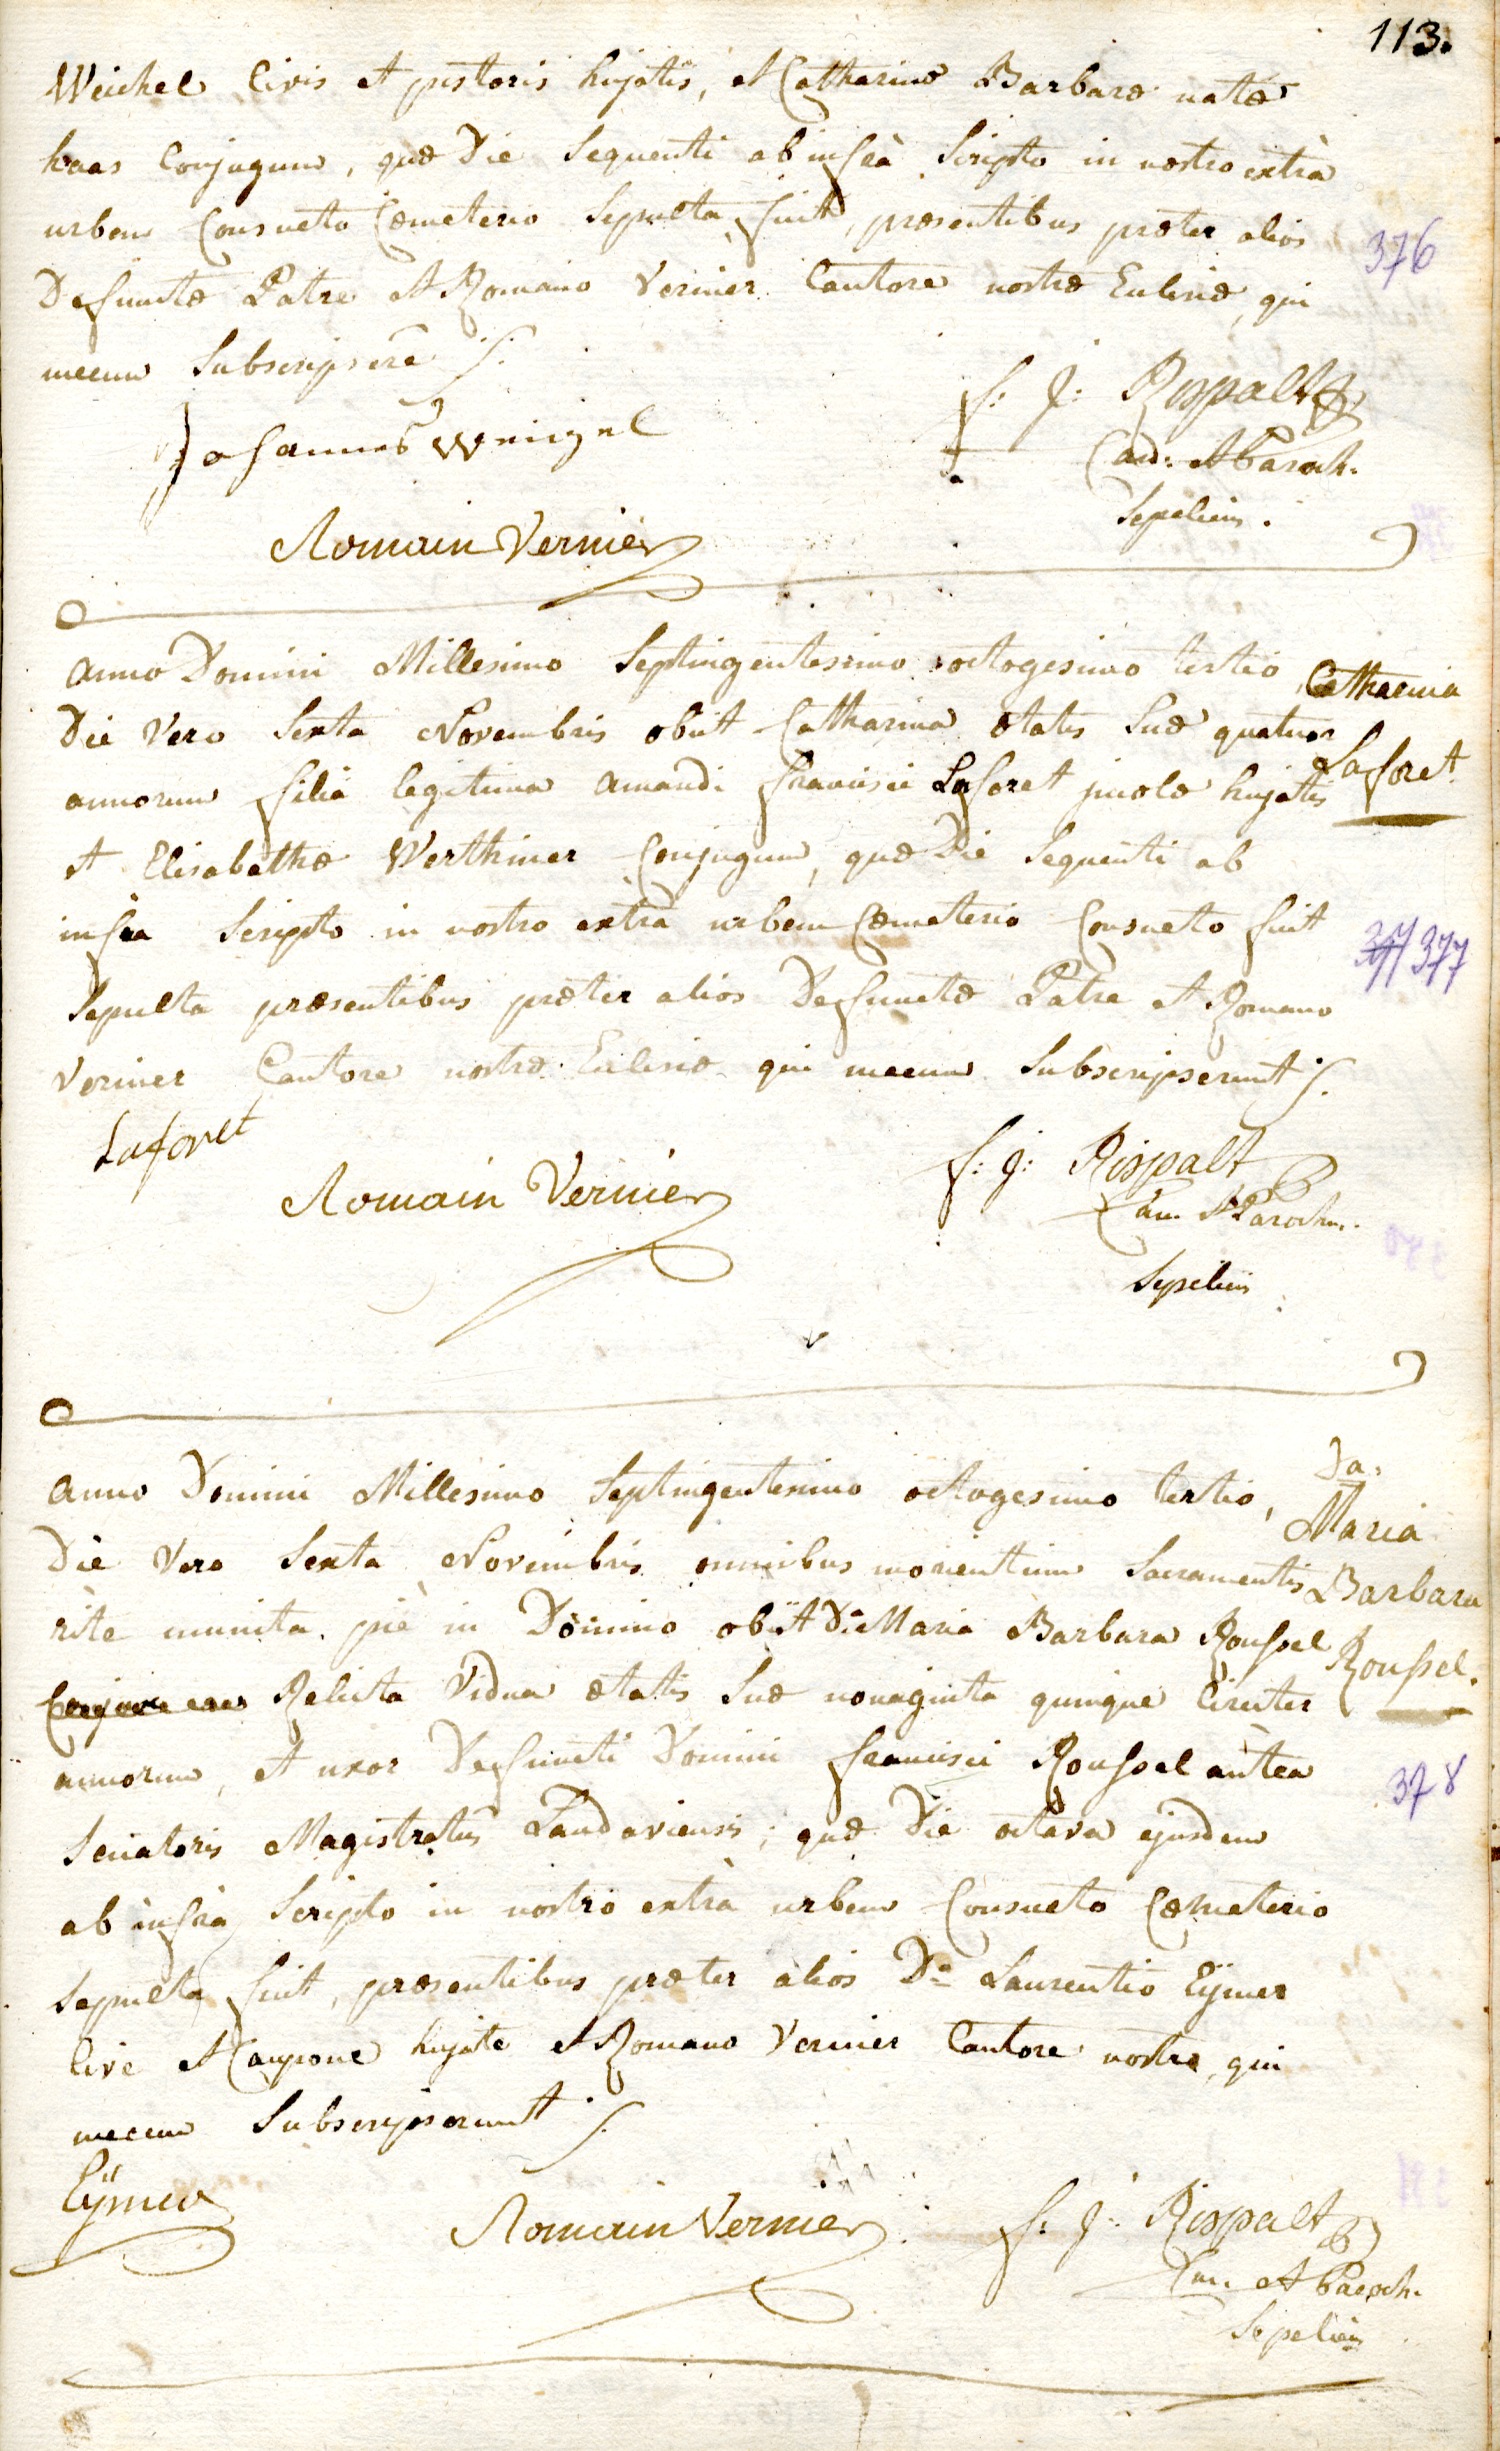 113.
Weichel Civis et pistoris hujatis, et Catharinæ Barbaræ natæ
haas Conjugum, quæ Die Sequenti ab infrà Scripto in nostro extrà
urbem Consueto Cœmeterio Sepulta fuit, præsentibus præter alios
376
Defunctæ Patre et Romano Vernier Cantore nostræ Eclesiæ, qui
mecum Subscripsere ƒ.
f: J: Rispalt
Johannes Weichel
Can: et Paroch.
Sepeliens.
Romain Vernier
anno Domini Millesimo Septingentesimo octogesimo tertio,
Catharina
Die Vero Sexta Novembris obiit Catharina ætatis Suæ quatuor
Laforet.
annorum filia legitima amandi francisci Laforet incolæ hujatis
et Elisabethæ Werthiner Conjugum, quæ Die Sequenti ab
infra Scripto in nostro extrà urbem Cœmeterio Consueto fuit
377 377
Sepulta præsentibus præter alios Defunctæ Patre et Romano
Vernier Cantore nostræ Eclesiæ qui mecum Subscripserunt ƒ.
Laforet
f: J: Rispalt
Romain Vernier
Can. et Paroch.
Sepeliens
anno Domini Millesimo Septingentesimo octogesimo tertio,
Da.
Maria
Die Vero Sexta Novembris omnibus morientium Sacramentis
Barbara
rite munita piè in Domino obiit Da Maria Barbara Roussel
Roussel.
Relicta Vidua ætatis Suæ nonaginta quinque Circiter
annorum, et uxor Defuncti Domini francisci Roussel antea
378
Senatoris Magistratûs Landaviensis; quæ Die octava ejusdem
ab infrà Scripto in nostro extrà urbem Consueto Cœmeterio
Sepulta fuit, præsentibus præter alios Do Laurentio Eÿmer
Cive et Caupone hujate et Romano Vernier Cantore nostro, qui
mecum Subscripserunt ƒ.
Eÿmer
Romain Vernier
f: J: Rispalt
Can. et Paroch.
Sepeliens